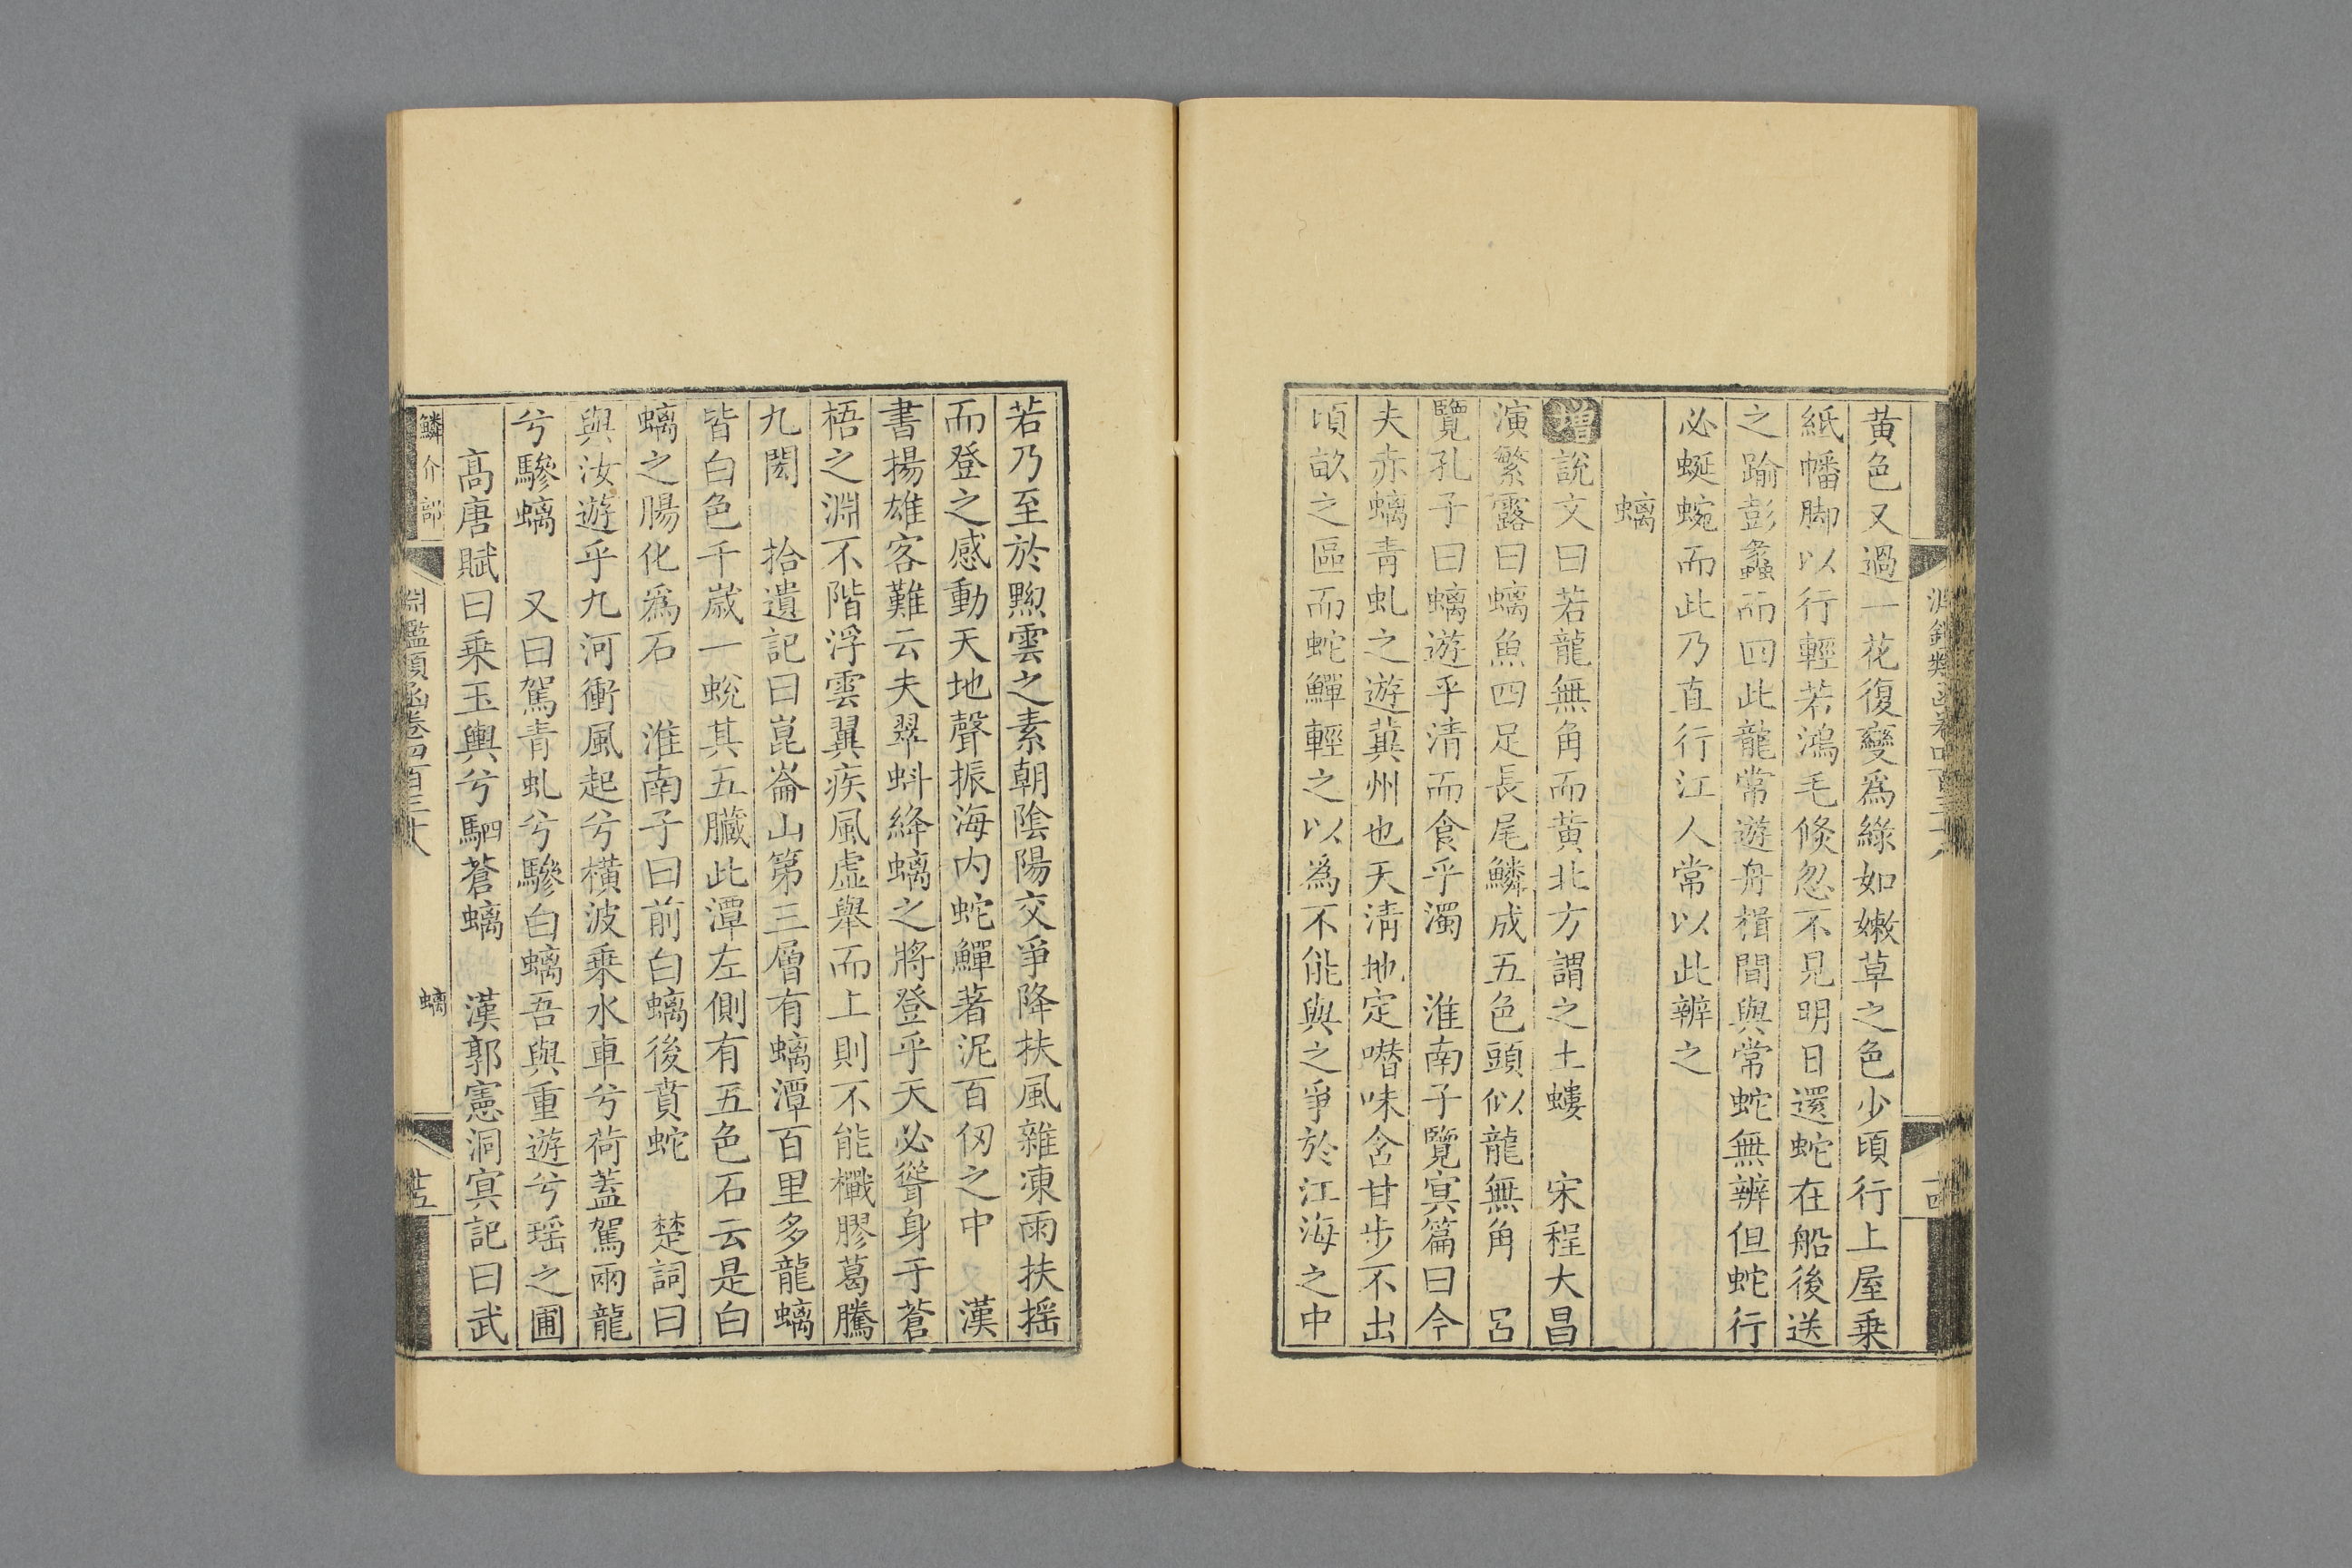 黄色又過一花復變爲綠如嫩草之色少頃行上屋乗
紙幡脚以行輕若鴻毛倐忽不見明日還蛇在船後送
之踰彭蠡而囘此龍常遊舟楫間與常蛇無辨但蛇行
必蜒蜿而此乃直行江人常以此辨之
螭
增說文曰若龍無角而黄北方謂之土螻　宋程大昌
演繁露曰螭魚四足長尾鱗成五色頭似龍無角　呂
覽孔子曰螭遊乎清而食乎濁　淮南子覽㝠篇曰今
夫赤螭青虬之遊冀州也天淸地定噆味含甘步不出
頃畝之區而蛇鱓輕之以爲不能與之爭於江海之中
若乃至於黝雲之素朝陰陽交爭降扶風雜凍雨扶摇
而登之感動天地聲振海内蛇鱓著泥百仞之中　漢
書揚雄客難云夫翠虯絳螭之將登乎天必聳身于蒼
梧之淵不階浮雲翼疾風虛舉而上則不能㰇膠葛騰
九閎　拾遺記曰崑崙山第三層有螭潭百里多龍螭
皆白色千歲一蛻其五臟此潭左側有五色石云是白
螭之腸化爲石　淮南子曰前白螭後賁蛇　楚詞曰
與汝遊乎九河衝風起兮橫波乗水車兮荷蓋駕兩龍
兮驂螭　又曰駕青虬兮驂白螭吾與重遊兮瑶之圃
高唐賦曰乗玉輿兮駟蒼螭　漢郭憲洞㝠記曰武
鱗介部
淵鑑類函卷四百三十八
螭